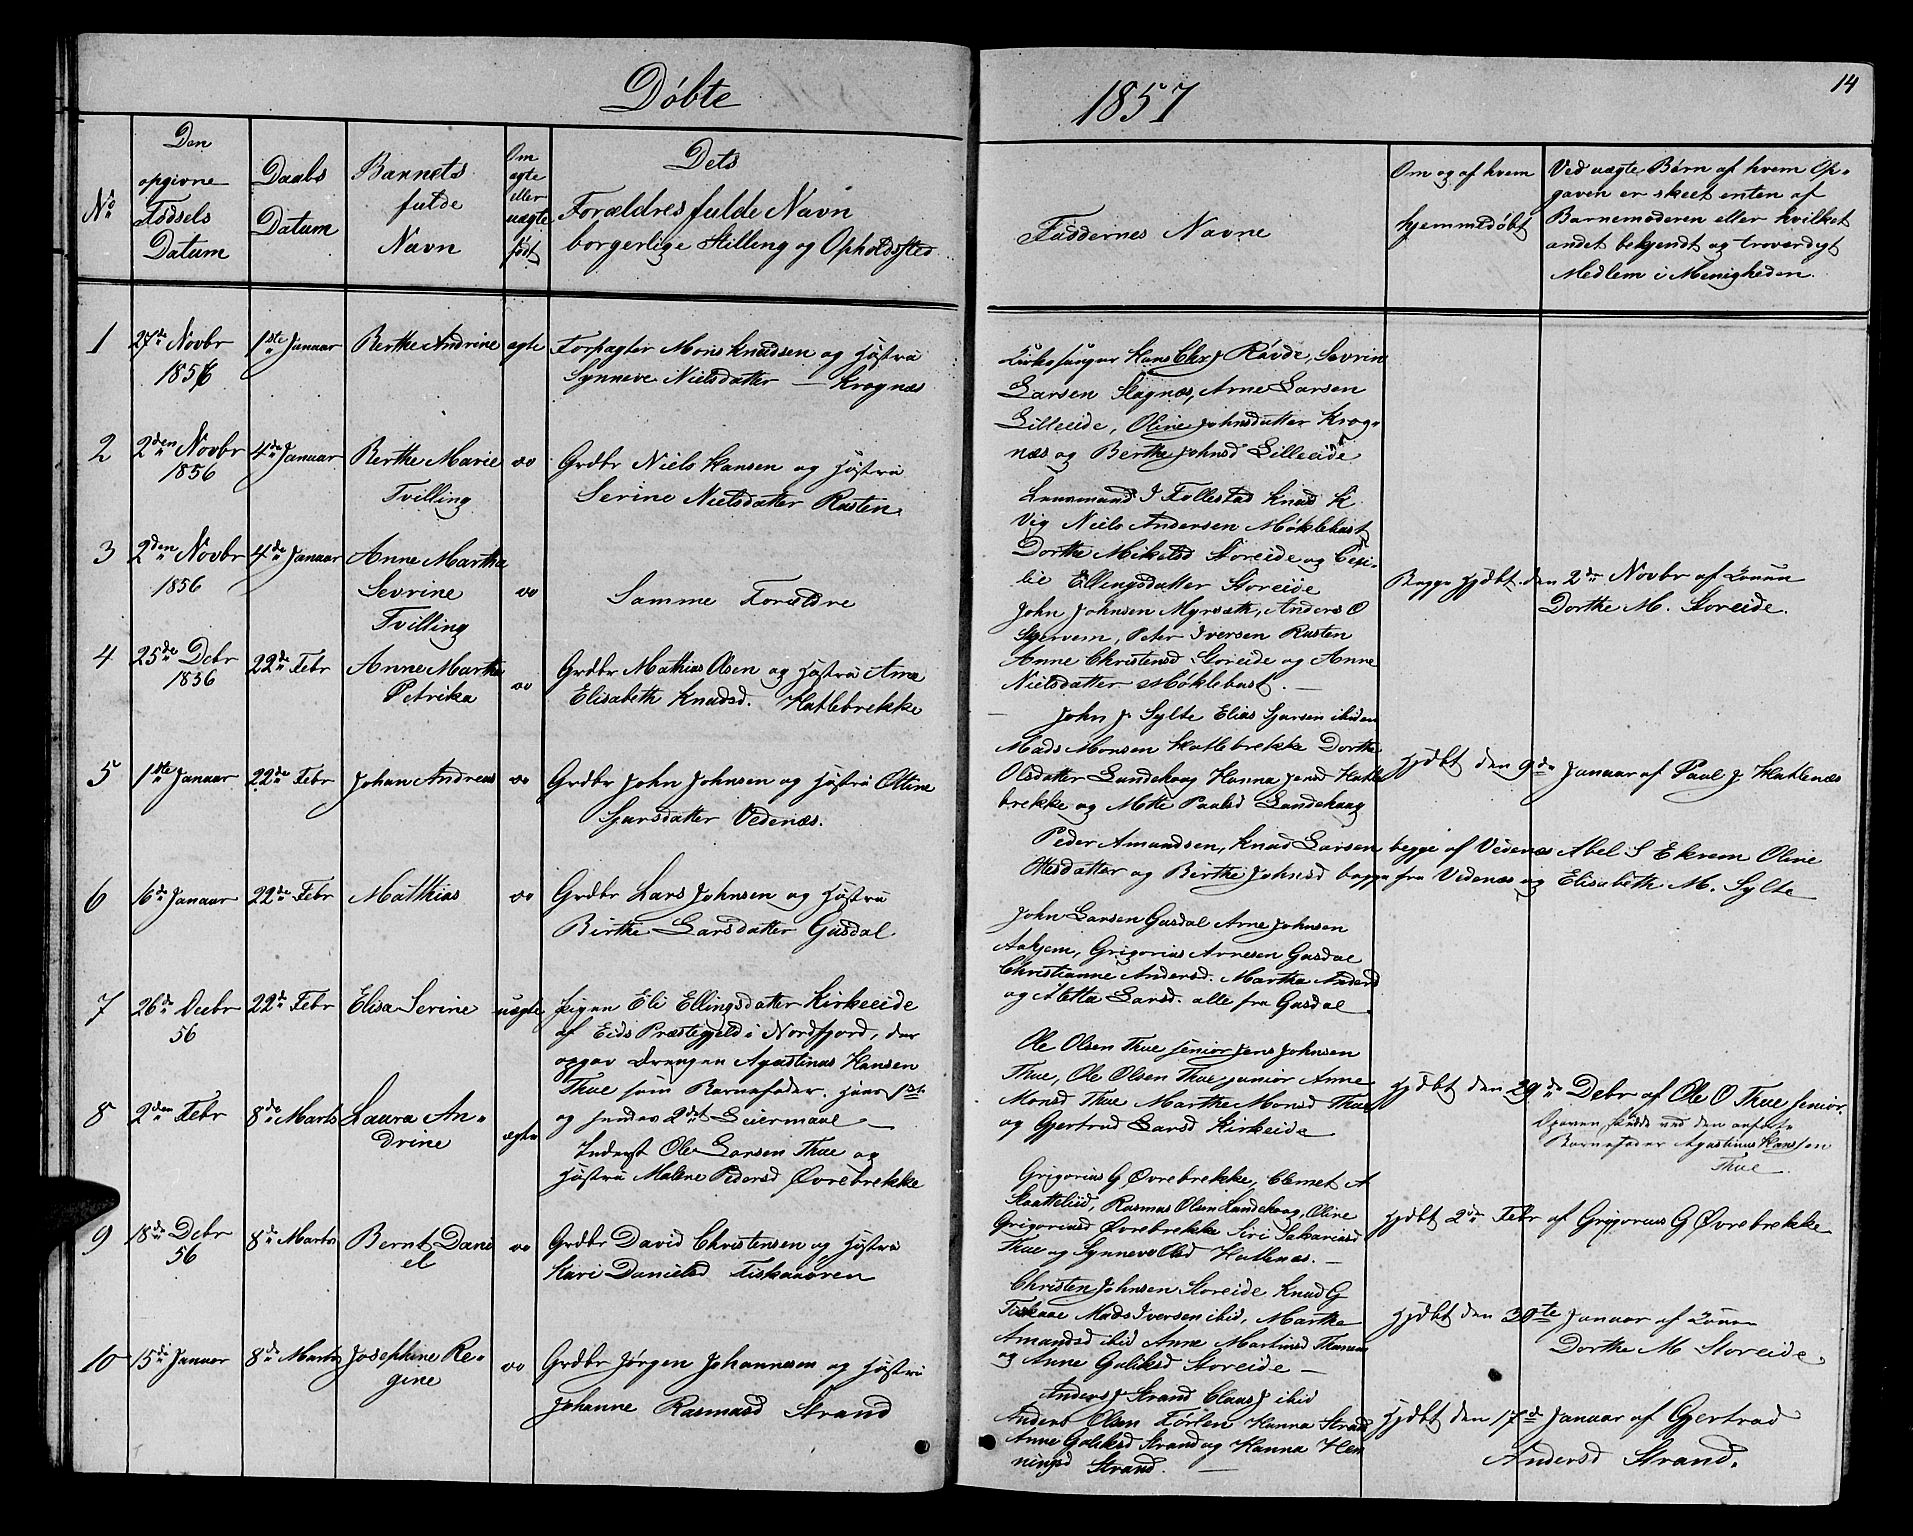 Døbte
1857
14
No
Den
opgivne
Fødsels
Datum
Daabs
Datum
Barnets
fulde
Navn
Om
ægte
eller
uægte
født
Dets
Forældres fulde Navn
borgerlige Stilling og Opholdssted
Faddernes Navne
Om og af hvem
hjemmedøbt
Ved uægte Børn af hvem Op-
gaven er skeet enten af
Barnemoderen eller hvilket
andet bekjendt og troværdigt
Medlem i Menigheden.
1
27de Novbr
1856
1ste Januar
Berthe Andrine
ægte
Forpagter Mons Knudsen og Hustru
Synneve Nielsdatter — Kragnæs
Kirkesanger Hans Chr J Røvde, Sevrin
Larsen Slagnæs, Arne Larsen
Lilleeide, Oline Johnsdatter Krag-
næs og Berthe Johnsd Lilleeide
2
2den Novbr
1856
4de Januar
Berthe Marie
Tvilling
do
Grdbr Niels Hansen og Hustru
Serine Nielsdatter Rusten.
Lensmand J Follestad Knud K
Vig Niels Andersen Møklebust
Dorthe Mikelsd Storeide og Cesi-
lie Ellingsdatter Storeide
3
2den Novbr
1856
4de Januar
Anne Martha
Sevrine
Tvilling
do
Samme Forældre
John Johnsen Myrsæth, Anders O
Skjervem, Peter Iversen Rusten
Anne Christensd Storeide og Anne
Nielsdatter Møklebust. —
Begge hjdbt den 2den Novbr af Konen
Dorthe M. Storeide.
4
25de Debr
1856
22de Febr
Anne Marthe
Petrika
do
Grdbr Mathias Olsen og Hustru Ane
Elisabeth Knudsd. Hatlebrekke
John J. Sylte Elias Sjursen ibiden
Mads Monsen Hatlebrekke Dorthe
Olsdatter Landehaag Hanna Jensd Hatle
brekke og Mette Paulsd Landehaag
hjdbt den 9de Januar af Paul J. Hatlenæs
5
1ste Januar
22de Febr
Johan Andreas
do
Grdbr John Johnsen og Hustru Oline
Sjursdatter Vedenæs.
Peder Amundsen, Knud Larsen begge af Vedenæs Abel S Ekrem Oline
Ottesdatter og Birthe Johnsd begge fra Vedenæs og Elisabeth M. Sylte
6
6de Januar
22de Febr
Mathias
do
Grdbr Lars Johnsen og Hustru
Birthe Larsdatter Gusdal
John Larsen Gusdal Arne Johnsen
Aahjem, Grigorius Arnesen Gusdal
Christianne Andersd. Martha Andersd
og Metta Larsd. alle fra Gusdal
7
26de Decbr
56
22de Febr
Elisa Serine
uægte
Pigen Eli Ellingsdatter Kirkeeide
af Eids Præstegjeld i Nordfjord, der
opgav Drengen Agustinus Hansen
Thue som Barnefader. hans 1ste
og hendes 2det Leiermaal —
Ole Olsen Thue senior Jens Johnsen
Thue, Ole Olsen Thue junior Anne
Monsd Thue Marthe Monsd Thue
og Gjertrud Larsd Kirkeide
hjdbt den 29de Debr af Ole O Thue senior.
Opgaven skede ved den anførte
Barnefader Agustinus Hanssen
Thue
8
2den Febr
8de Marts
Laura An-
drine
ægte
Inderst Ole Larsen Thue og
Hustru Malene Pedersd Øvrebrekke
Grigorius G Øvrebrekke, Clemet A
Skattelid, Rasmus Olsen Landehaag, Oline
Grigoriusd Øvrebrekke Siri Sakariasd
Thue og Synneve Olsd Hatlenæs. —
hjdbt 2den Febr af Grigorius G Øvrebrekke
9
18de Debr
56
8de Marts
Bernt Dani
el
do
Grdbr David Christensen og Hustru
Kari Danielsd Fiskaaøren
Christen Johnsen Storeide Knud G
Fiskaae Mads Iversen ibid, Marthe
Amundsd ibid Anne Martinsd
og Anne Guliksd Storeide —
hjdbt den 30te Januar af Konen
Dorthe M Storeide
10
15de Januar
8de Marts
Josephine Re-
gine
do
Grdbr Jørgen Johannessen og Hustru
Johanne Rasmusd Strand
Anders J Strand Claus J ibid
Anders Olsen Førlen Hanna Strand
Anne Guliksd Strand og Hanna Hen
ningsd Strand. —
hjdbt den 17de Januar af Gjertrud
Andersd Strand.